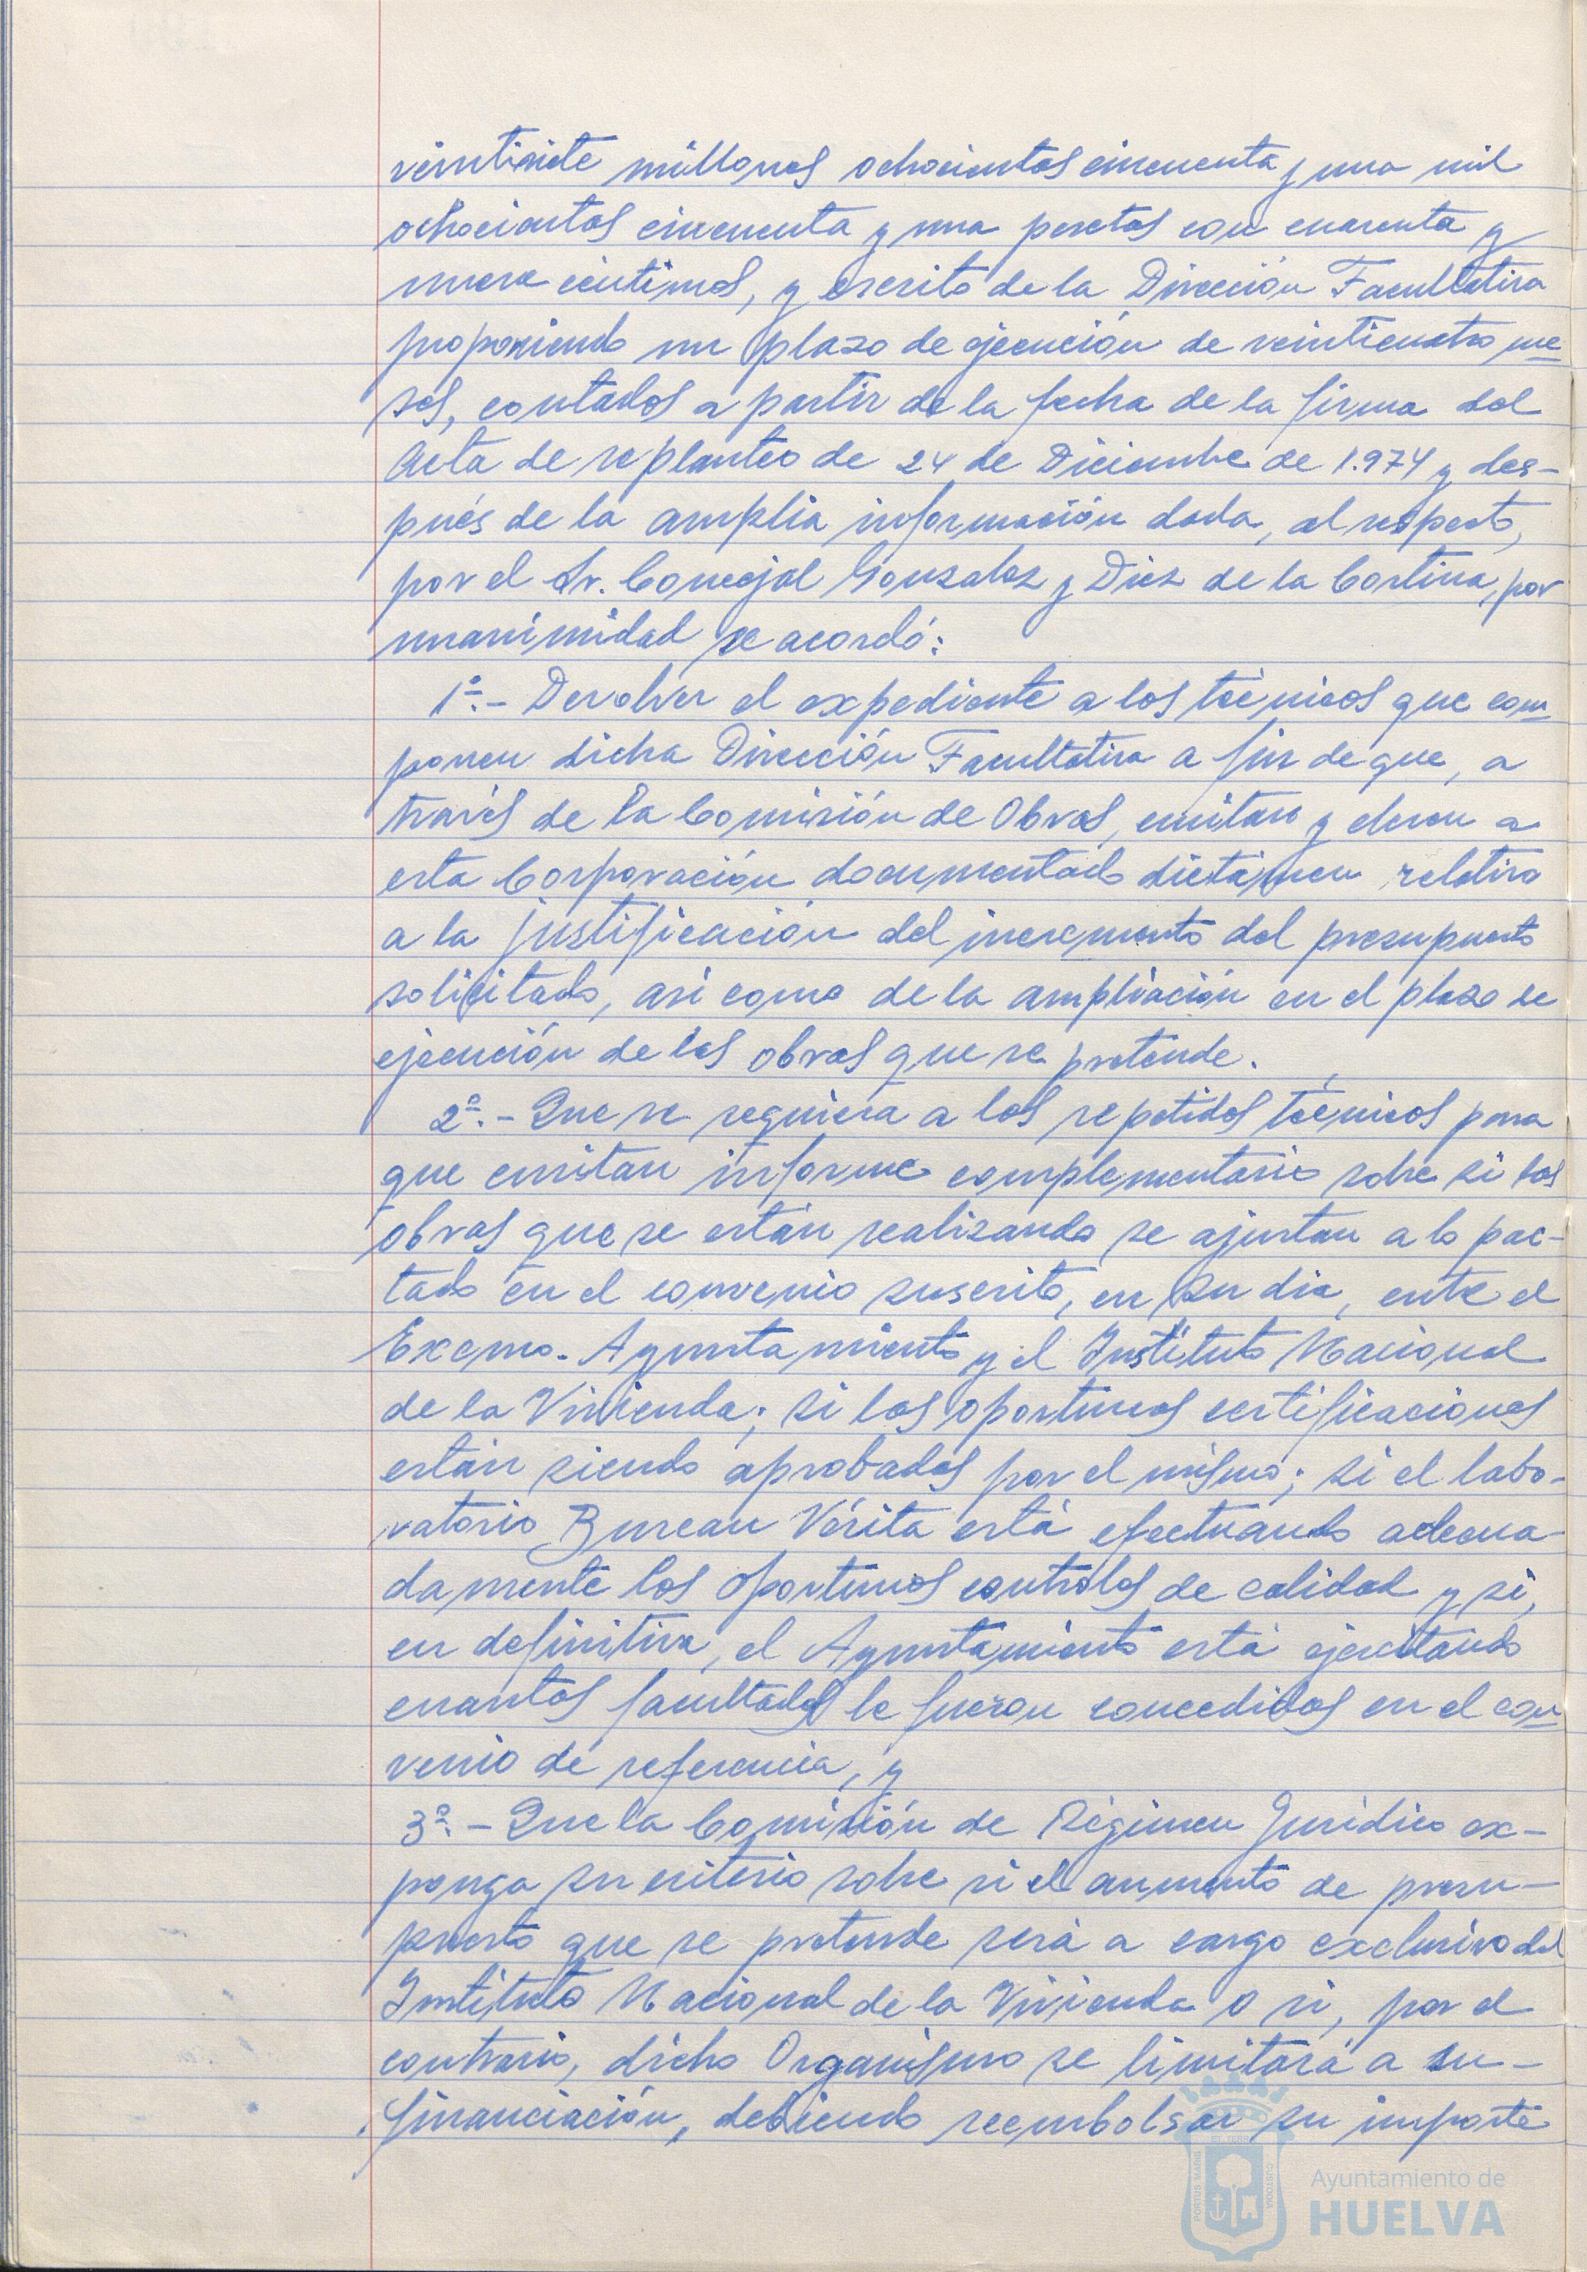 veintisiete millones ochocientas cincuenta y una mil
ochocientas cincuenta y una pesetas con cuarenta y
nueve céntimos, y escrito de la Dirección Facultativa
proponiendo un plazo de ejecución de veinticuatro me-
ses, contados a partir de la fecha de la firma del
Acta de replanteo de 24 de Diciembre de 1.974 y des-
pués de la amplia información dada, al respecto,
por el Sr. Concejal Gonzalez y Diez de la Cortina, por
unanimidad se acordó:
1º.- Devolver el expediente a los técnicos que com-
ponen dicha Dirección Facultativa a fin de que, a
través de la Comisión de Obras, emitan y eleven a
esta Corporación documentado dictámen relativo
a la justificación del incremento del presupuesto
solicitado, así como de la ampliación en el plazo de
ejecución de las obras que se pretende.
2º.- Que se requiera a los repetidos técnicos para
que emitan informe complementario sobre si las
obras que se están realizando se ajustan a lo pac-
tado en el convenio suscrito, en su día, entre el
Excmo. Ayuntamiento y el Instituto Nacional
de la Vivienda; si las oportunas certificaciones
están siendo aprobadas por el mismo; si el labo-
ratorio Bureau Vérita está efectuando adecua-
damente los oportunos controles de calidad y si,
en definitiva, el Ayuntamiento está ejercitando
cuantas facultades le fueron concedidas en el con-
venio de referencia, y
3º.- Que la Comisión de Régimen Jurídico ex-
ponga su criterio sobre si el aumento de presu-
puesto que se pretende será a cargo exclusivo del
Instituto Nacional de la Vivienda o si, por el
contrario, dicho Organismo se limitará a su-
financiación, debiendo reembolsar su importe
Ayuntamiento de
HUELVA